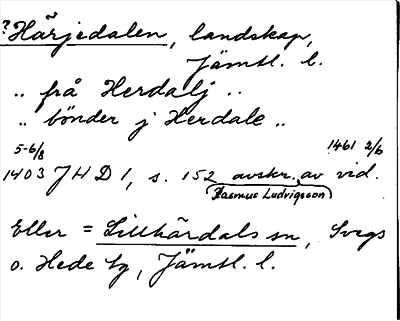 ?Härjedalen, landskap,
Jämtl. l.
.. från Herdalj ..
.. bönder j Herdale ..
5-6/8 1461 2/6
1403 JHD 1, s. 152 avskr. av vid.
Rasmus Ludvigsson
Eller = Lillhärdals sn, Svegs
o. Hede tg, Jämtl. l.